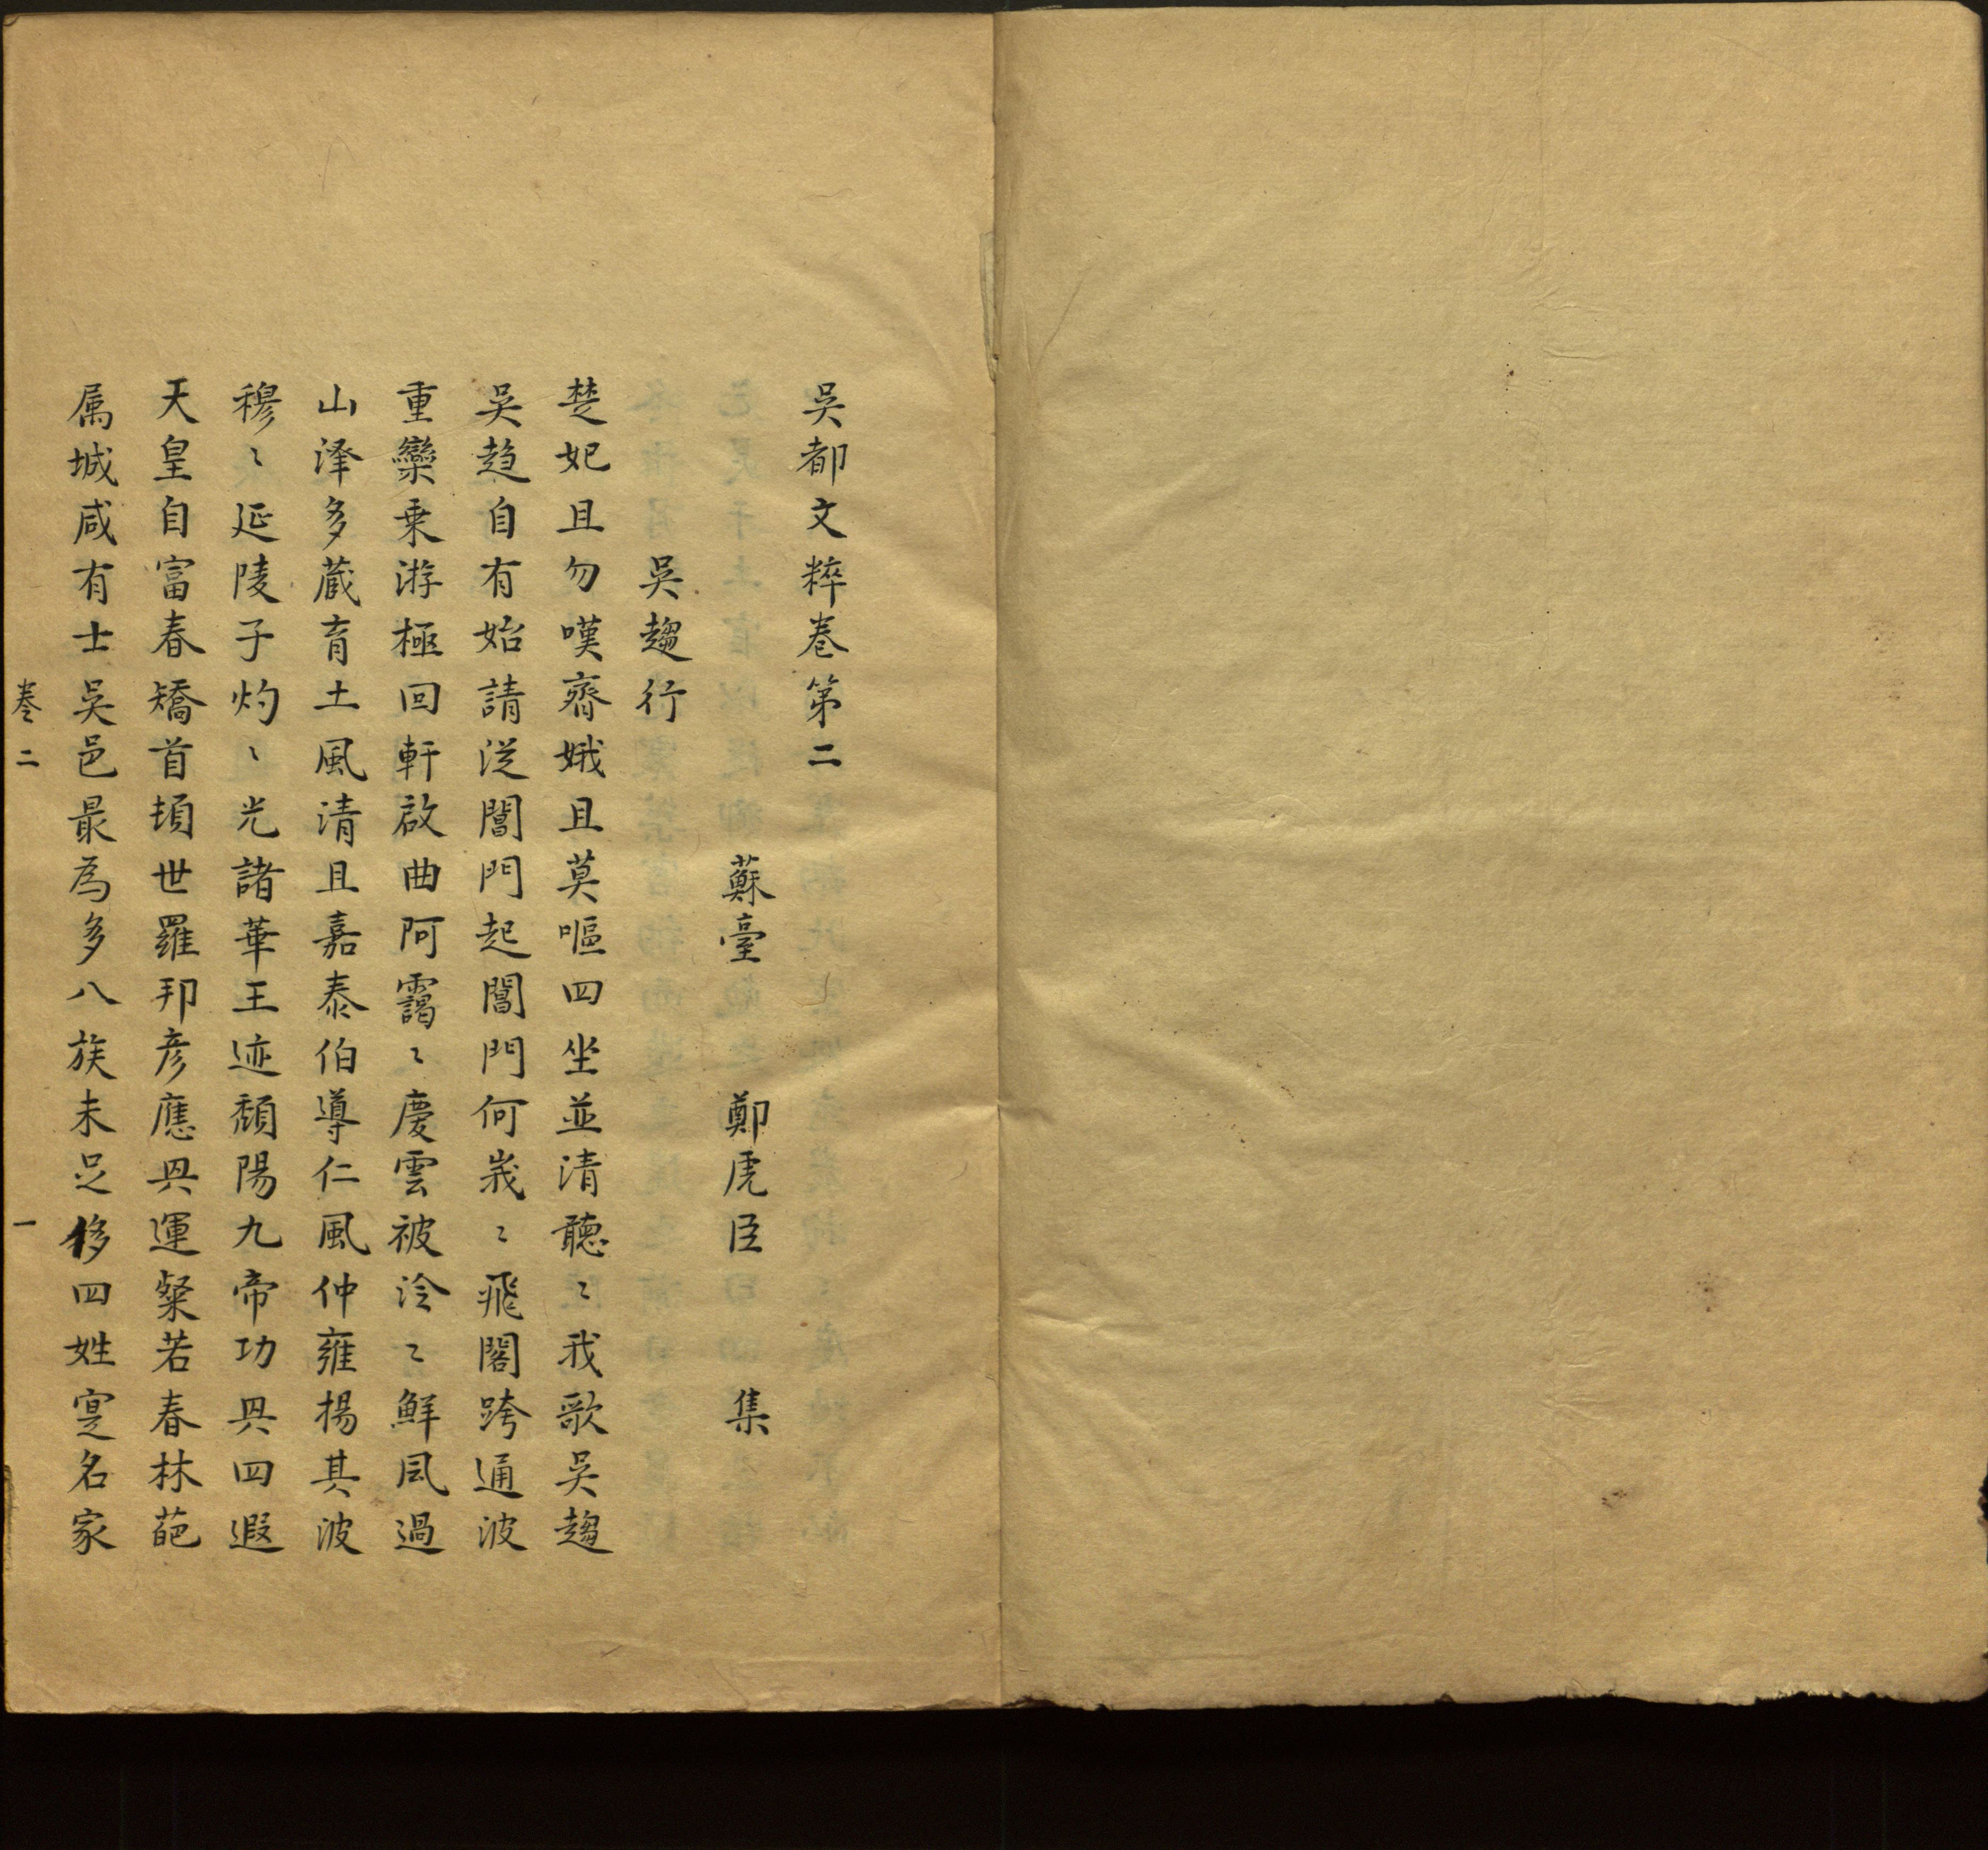 吳都文粹卷第二
蘇臺 鄭虎臣 集
吳趨行
楚妃且勿嘆齊娥且莫嘔四坐並清聽〻我歌吳趨
吳趍自有始請從閶門起閶門何峩〻飛閣跨通波
重欒乗游極回軒啟曲阿靄〻慶雲被泠〻鮮風過
山澤多蔵育土風清且嘉泰伯導仁風仲雍揚其波
穆〻延陵子灼〻光諸華王迹頹陽九帝功興四遐
天皇自富春矯首頓世羅邦彥應興運粲若春林葩
属城咸有士吳邑最為多八族未足侈四姓寔名家
卷二 一